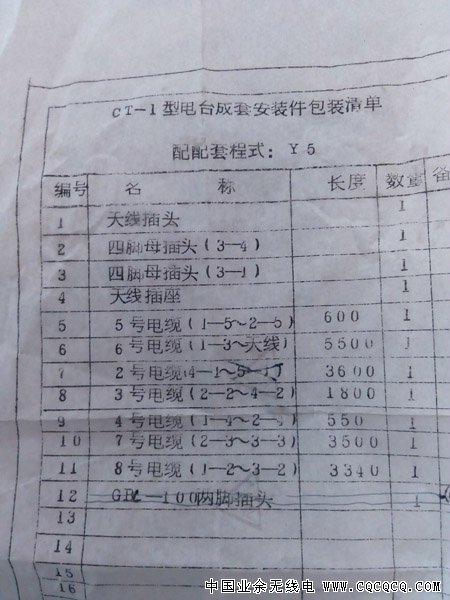 CT-1型电台成套安装件包装清单
配配套程式: Y5
编号 名 称 长度 数量 备
1 天线插头 1
2 四脚母插头(3-4) 1
3 四脚母插头(3-1) 1
4 天线插座 1
5 5号电缆(1-5~2-5) 600 1
6 6号电缆(1-3~天线) 5500 1
7 2号电缆(4-1~5-1) 3600 1
8 3号电缆(2-2~4-2) 1800 1
9 4号电缆(1-4~2- ) 550 1
10 7号电缆(2-3~3-3) 3500 1
11 8号电缆(1-2~3-2) 3340 1
12 -100两脚插头 1
13
14
15
16
中国业余无线电 www.CQCQCQ.com